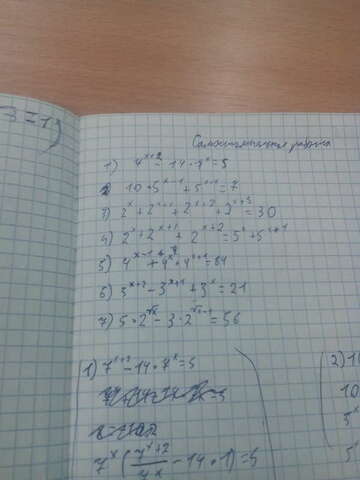 3=1)
Самостоятельная работа
1) 7^{x+2} - 14·7^x = 5
2) 10·5^{x-1} + 5^{x+1} = 7
3) 2^x + 2^{x+1} + 2^{x+2} + 2^{x+3} = 30
4) 2^x + 2^{x+1} + 2^{x+2} = 5^x + 5^{x+1}
5) 4^{x-1} + 4^x + 4^{x+1} = 84
6) 3^{x+2} - 3^{x+1} + 3^x = 21
7) 5·2^{√x} - 3·2^{√x-1} = 56
1) 7^{x+2} - 14·7^x = 5
2) 1
10
5^x
7^x (7^{x+2}/7^x - 14·1) = 5
5^x